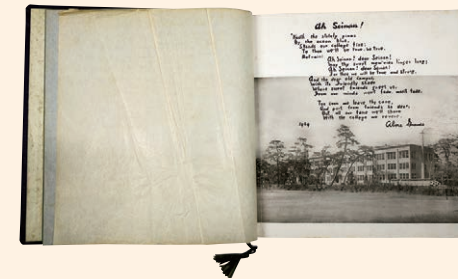 Ah Seinan!
'Neath the stately pines
By the ocean blue,
Stands our college fine;
To thee we'll be true, be true.
Refrain: Ah Seinan! dear Seinan!
May thy sweet mem'ries linger long;
Ah Seinan! dear Seinan!
For thee we will be true and strong.
And the dear old campus,
With its friendly shade
Where sweet friends greet us,
From our minds won't fade, won't fade.
Too soon we leave thy care,
And part from friends so dear,
But all our love we'll share
With the college we revere.
1924
Alma